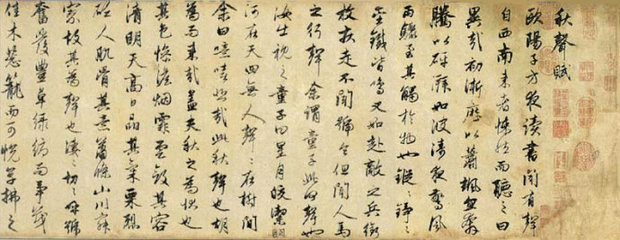 秋聲賦
歐陽子方夜讀書聞有聲
自西南来者悚然而聽之曰
異哉初淅瀝以蕭颯忽奔
騰以砰湃如波濤夜驚風
雨驟至其觸於物也鏦〻錚〻
金鐵皆鳴又如赴敵之兵銜
枚疾走不聞號令但聞人馬
之行聲余謂童子此何聲也
汝出視之童子曰星月皎潔明
河在天四無人聲〻在樹間
余曰噫嘻悲哉此秋聲也胡
為而来哉蓋夫秋之為狀也
其色慘淡烟霏雲斂其容
清明天高日晶其氣栗冽
砭人肌骨其意蕭條山川寂
寥故其為聲也淒〻切〻呼號
奮發豐草綠縟而爭茂
佳木葱蘢而可悅草拂之